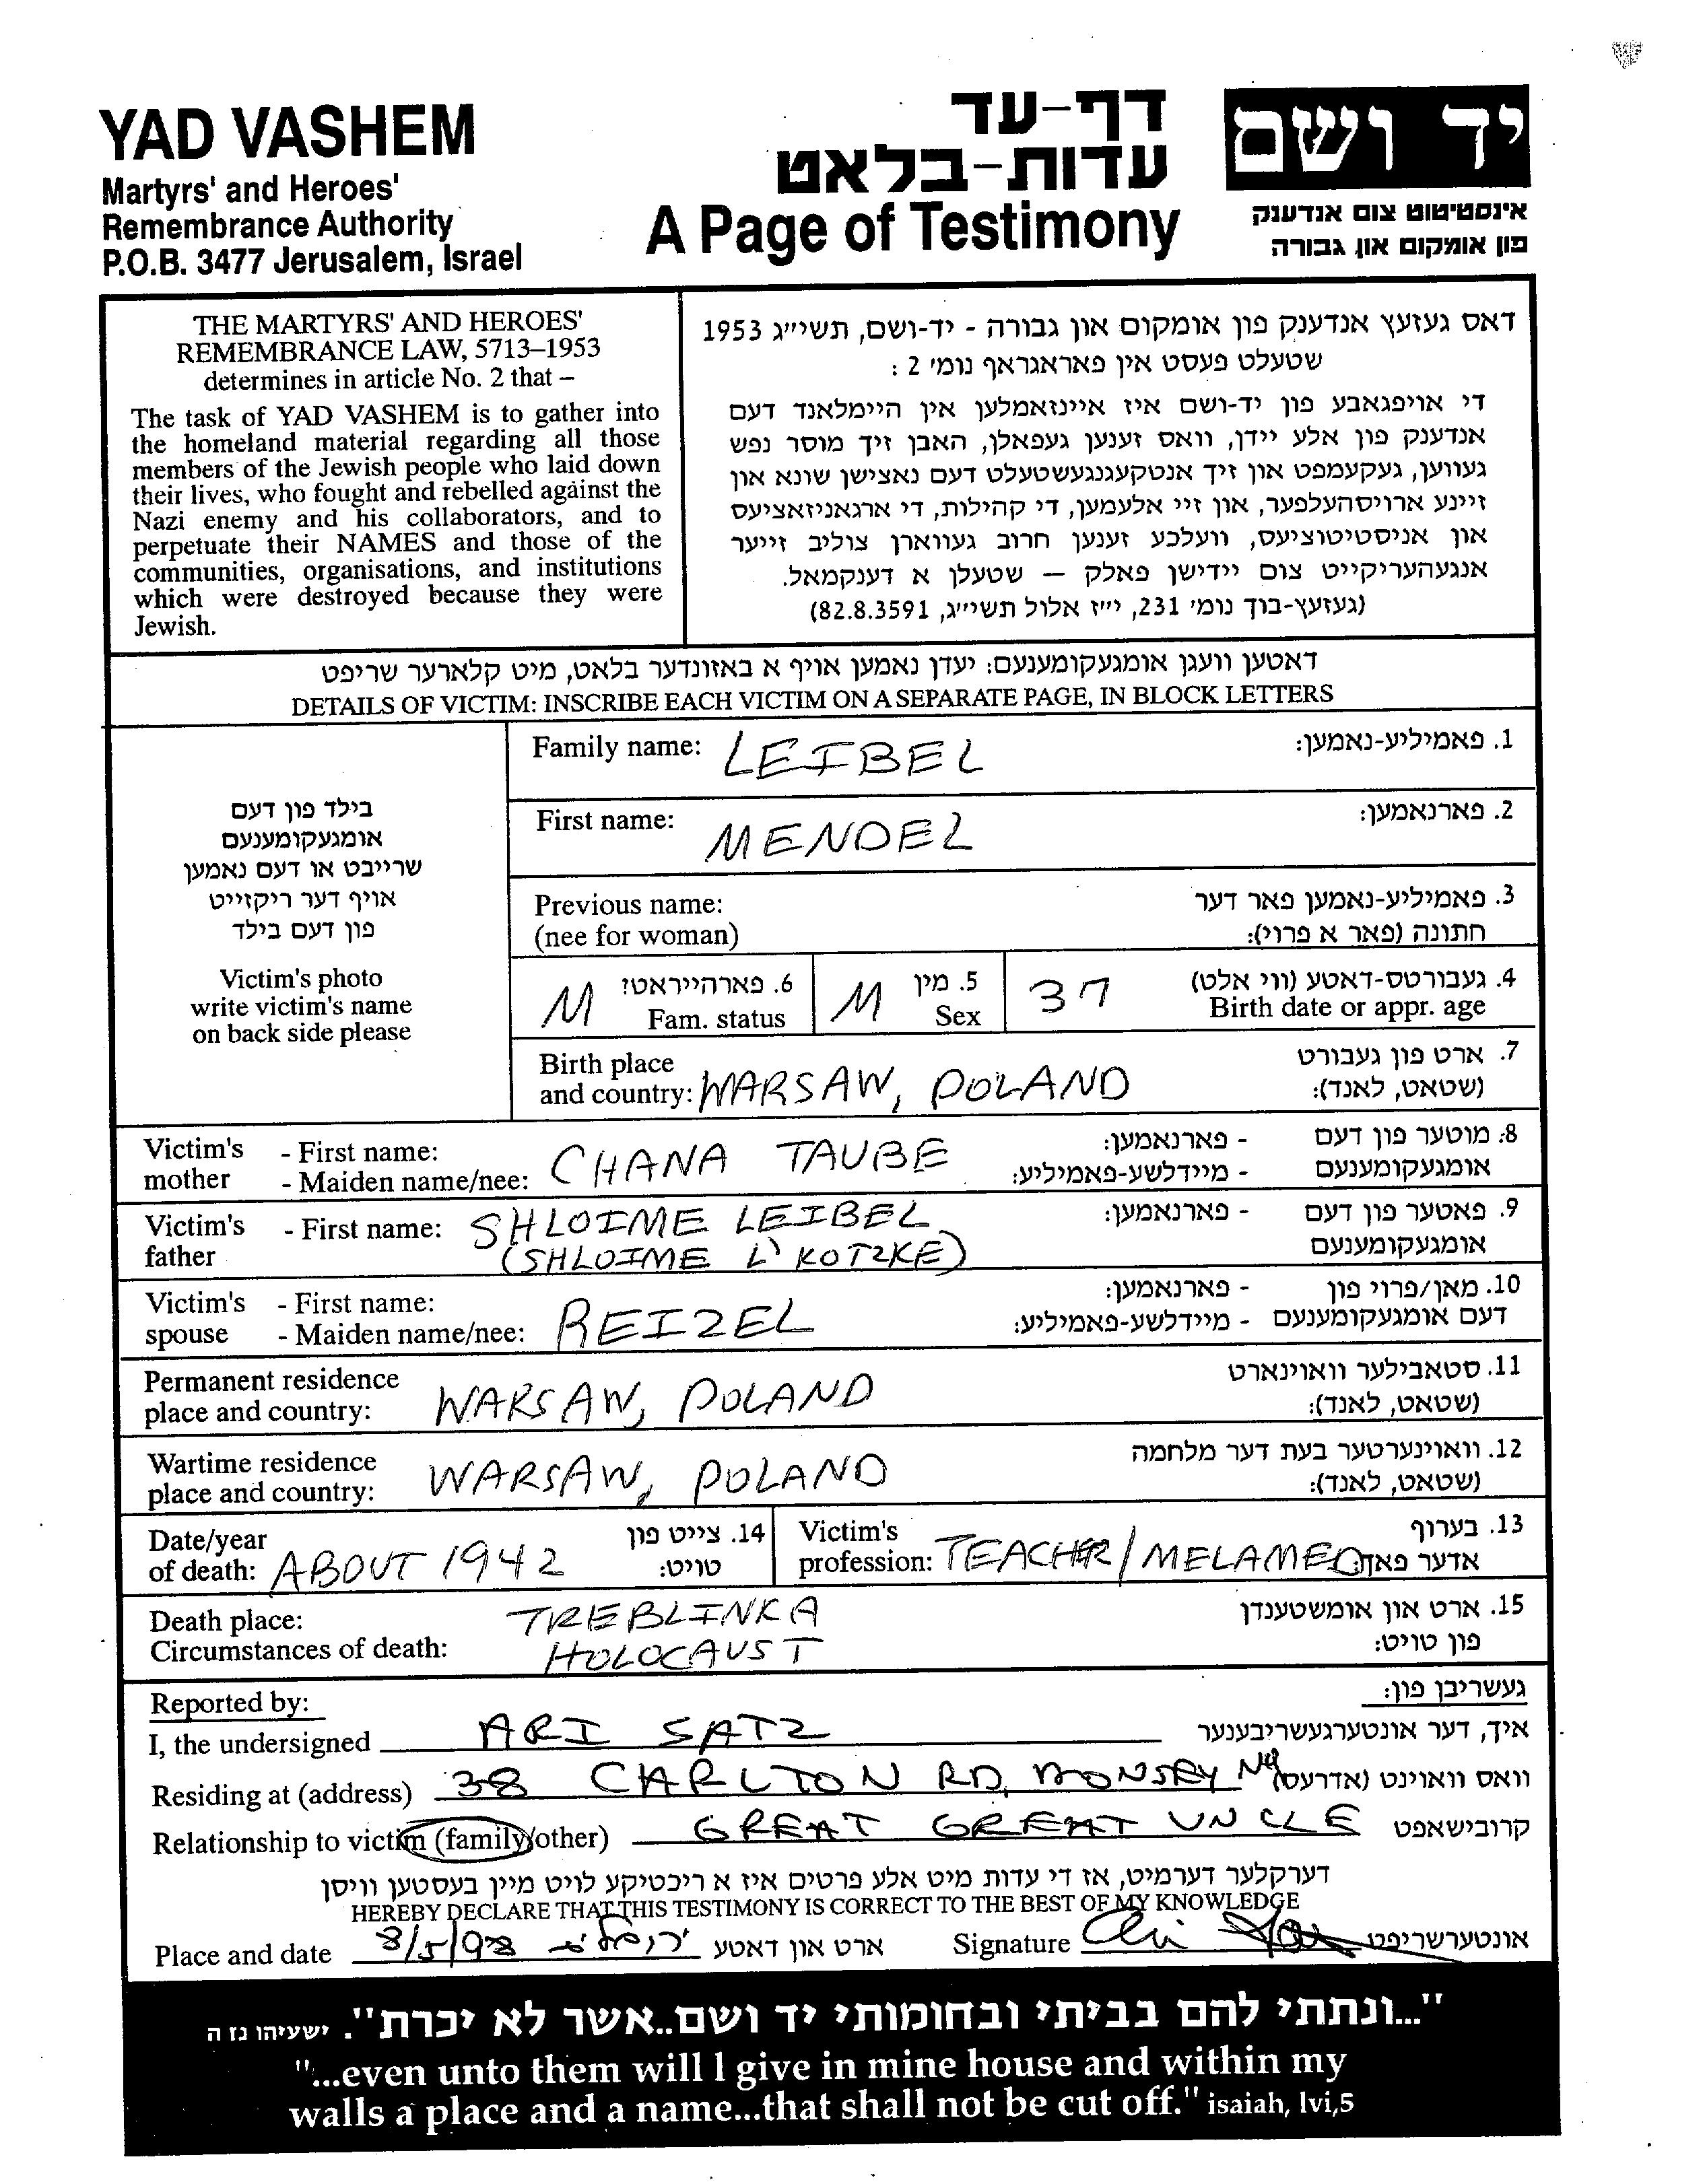 YAD VASHEM
Martyrs' and Heroes'
Remembrance Authority
P.O.B. 3477 Jerusalem, Israel
דף-עד
עדות-בלאט
A Page of Testimony
יד ושם
אינסטיטוט צום אנדענק
פון אומקום און גבורה
THE MARTYRS' AND HEROES'
REMEMBRANCE LAW, 5713–1953
determines in article No. 2 that –
The task of YAD VASHEM is to gather into
the homeland material regarding all those
members of the Jewish people who laid down
their lives, who fought and rebelled against the
Nazi enemy and his collaborators, and to
perpetuate their NAMES and those of the
communities, organisations, and institutions
which were destroyed because they were
Jewish.
דאס געזעץ אנדענק פון אומקום און גבורה - יד-ושם, תשי״ג 1953
שטעלט פעסט אין פאראגראף נומ׳ 2 :
די אויפגאבע פון יד-ושם איז איינזאמלען אין היימלאנד דעם
אנדענק פון אלע יידן, וואס זענען געפאלן, האבן זיך מוסר נפש
געווען, געקעמפט און זיך אנטקעגנגעשטעלט דעם נאצישן שונא און
זיינע ארויסהעלפער, און זיי אלעמען, די קהילות, די ארגאניזאציעס
און אניסטיטוציעס, וועלכע זענען חרוב געווארן צוליב זייער
אנגעהעריקייט צום יידישן פאלק — שטעלן א דענקמאל.
(געזעץ-בוך נומ׳ 231, י״ז אלול תשי״ג, 82.8.3591)
דאטען וועגן אומגעקומענעם: יעדן נאמען אויף א באזונדער בלאט, מיט קלארער שריפט
DETAILS OF VICTIM: INSCRIBE EACH VICTIM ON A SEPARATE PAGE, IN BLOCK LETTERS
בילד פון דעם
אומגעקומענעם
שרייבט או דעם נאמען
אויף דער ריקזייט
פון דעם בילד
Victim's photo
write victim's name
on back side please
Family name: LEIBEL 1. פאמיליע-נאמען:
First name: MENDEL 2. פארנאמען:
Previous name: 3. פאמיליע-נאמען פאר דער
(nee for woman) חתונה (פאר א פרוי):
M 6. פארהייראט? M 5. מין 37 4. געבורטס-דאטע (ווי אלט)
Fam. status Sex Birth date or appr. age
Birth place 7. ארט פון געבורט
and country: WARSAW, POLAND (שטאט, לאנד):
Victim's - First name: CHANA TAUBE - פארנאמען: 8. מוטער פון דעם
mother - Maiden name/nee: - מיידלשע-פאמיליע: אומגעקומענעם
Victim's - First name: SHLOIME LEIBEL - פארנאמען: 9. פאטער פון דעם
father (SHLOIME L' KOTZKE) אומגעקומענעם
Victim's - First name: - פארנאמען: 10. מאן/פרוי פון
spouse - Maiden name/nee: REIZEL - מיידלשע-פאמיליע: דעם אומגעקומענעם
Permanent residence 11. סטאבילער וואוינארט
place and country: WARSAW, POLAND (שטאט, לאנד):
Wartime residence 12. וואוינערטער בעת דער מלחמה
place and country: WARSAW, POLAND (שטאט, לאנד):
Date/year 14. צייט פון Victim's 13. בערוף
of death: ABOUT 1942 טויט: profession: TEACHER/MELAMED אדער פאך:
Death place: TREBLINKA 15. ארט און אומשטענדן
Circumstances of death: HOLOCAUST פון טויט:
Reported by: געשריבן פון:
I, the undersigned ARI SATZ איך, דער אונטערגעשריבענער
Residing at (address) 38 CARLTON RD, MONSEY NY וואס וואוינט (אדרעס)
Relationship to victim (family/other) GREAT GREAT UNCLE קרובישאפט
דערקלער דערמיט, אז די עדות מיט אלע פרטים איז א ריכטיקע לויט מיין בעסטען וויסן
HEREBY DECLARE THAT THIS TESTIMONY IS CORRECT TO THE BEST OF MY KNOWLEDGE
Place and date 3/5/98 ארט און דאטע Signature אונטערשריפט
"...ונתתי להם בביתי ובחומותי יד ושם..אשר לא יכרת". ישעיהו נז ה
"...even unto them will I give in mine house and within my
walls a place and a name...that shall not be cut off." isaiah, lvi,5